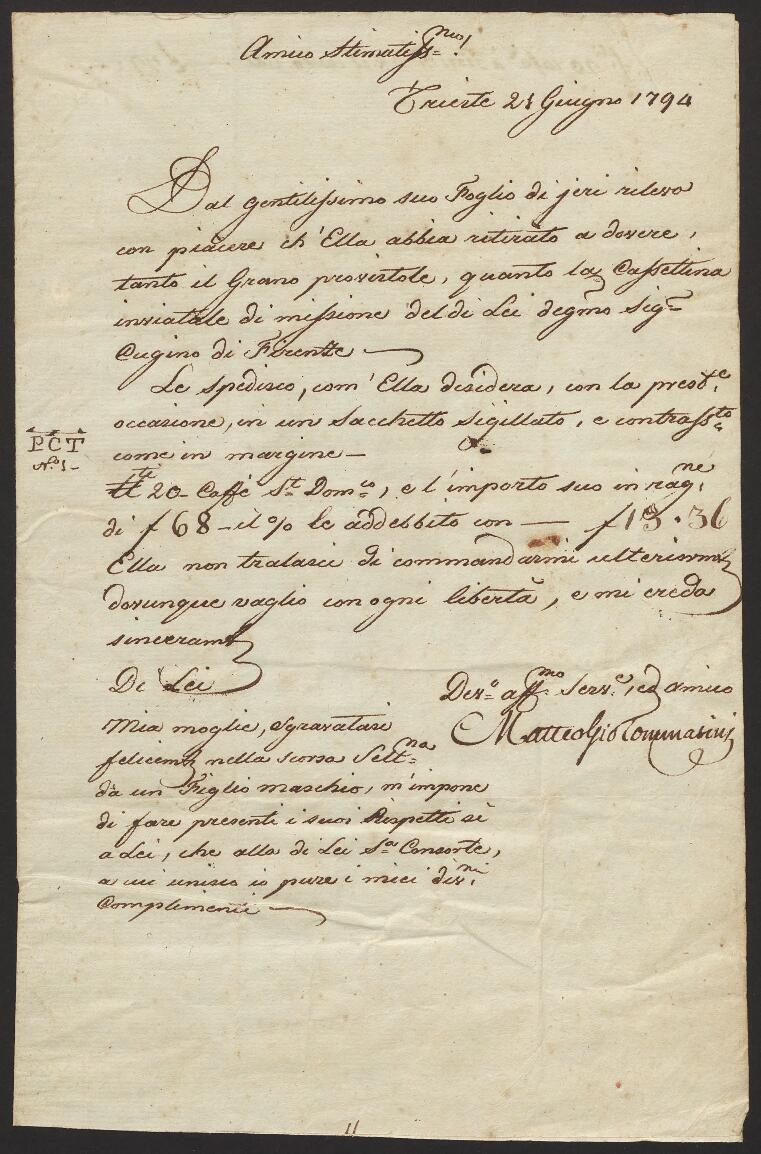 Amico Stimatiss.mo!
Trieste 21 Giugno 1794
Dal gentilissimo suo Foglio di jeri rilevo
con piacere ch'Ella abbia ritirato a dovere,
tanto il Grano provistole, quanto la Cassettina
inviatale di missione del di Lei degmo Sigr
Cugino di Firentze —
Le spedisco, com'Ella desidera, con la preste
occasione, in un Sacchetto Sigillato, e contrassto
come in margine —
PCT
N.o 1 -
20 - Caffè St. Domco, e l'importo suo in ragne
di f 68 - il % le addebbito con — f 13.36
Ella non tralasci di commandarmi ulteriormte
dovunque vaglio con ogni libertà, e mi creda
sinceramte
Di Lei
Devo affmo Serve, ed amico
Matteo Gio Tommasini
Mia moglie, sgravatasi
felicemte nella scorsa Settna
da un Figlio maschio, m'impone
di fare presenti i suoi Rispetti sì
a Lei, che alla di Lei Sa Consorte,
a cui unisco io pure i miei divni
Complimenti —
11